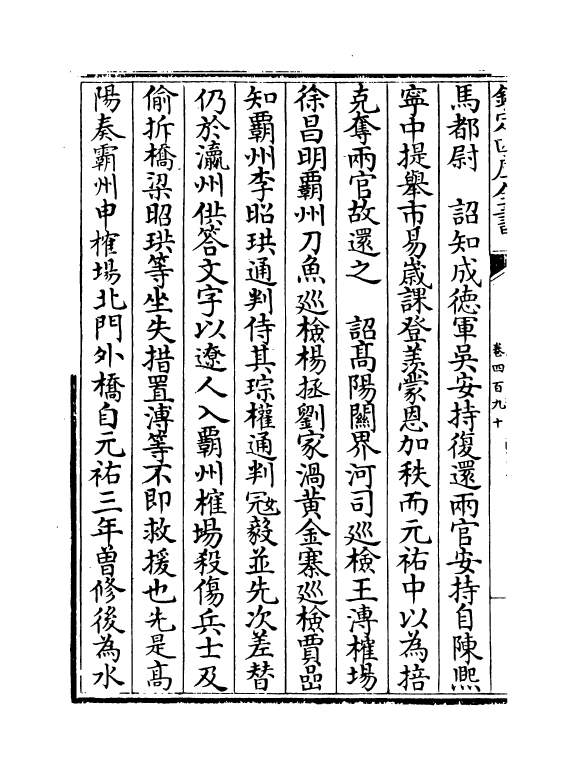 欽定四庫全書
卷四百九十
馬都尉　詔知成徳軍吳安持復還兩官安持自陳熈
寧中提舉市易嵗課登羨蒙恩加秩而元祐中以為掊
克奪兩官故還之　詔髙陽關界河司廵檢王溥榷場
徐昌明霸州刀魚廵檢楊拯劉家渦黄金寨廵檢賈嵒
知霸州李昭珙通判侍其琮權通判冦毅並先次差替
仍於瀛州供答文字以遼人入霸州榷場殺傷兵士及
偷折橋梁昭珙等坐失措置溥等不即救援也先是髙
陽奏霸州申榷場北門外橋自元祐三年曽修後為水